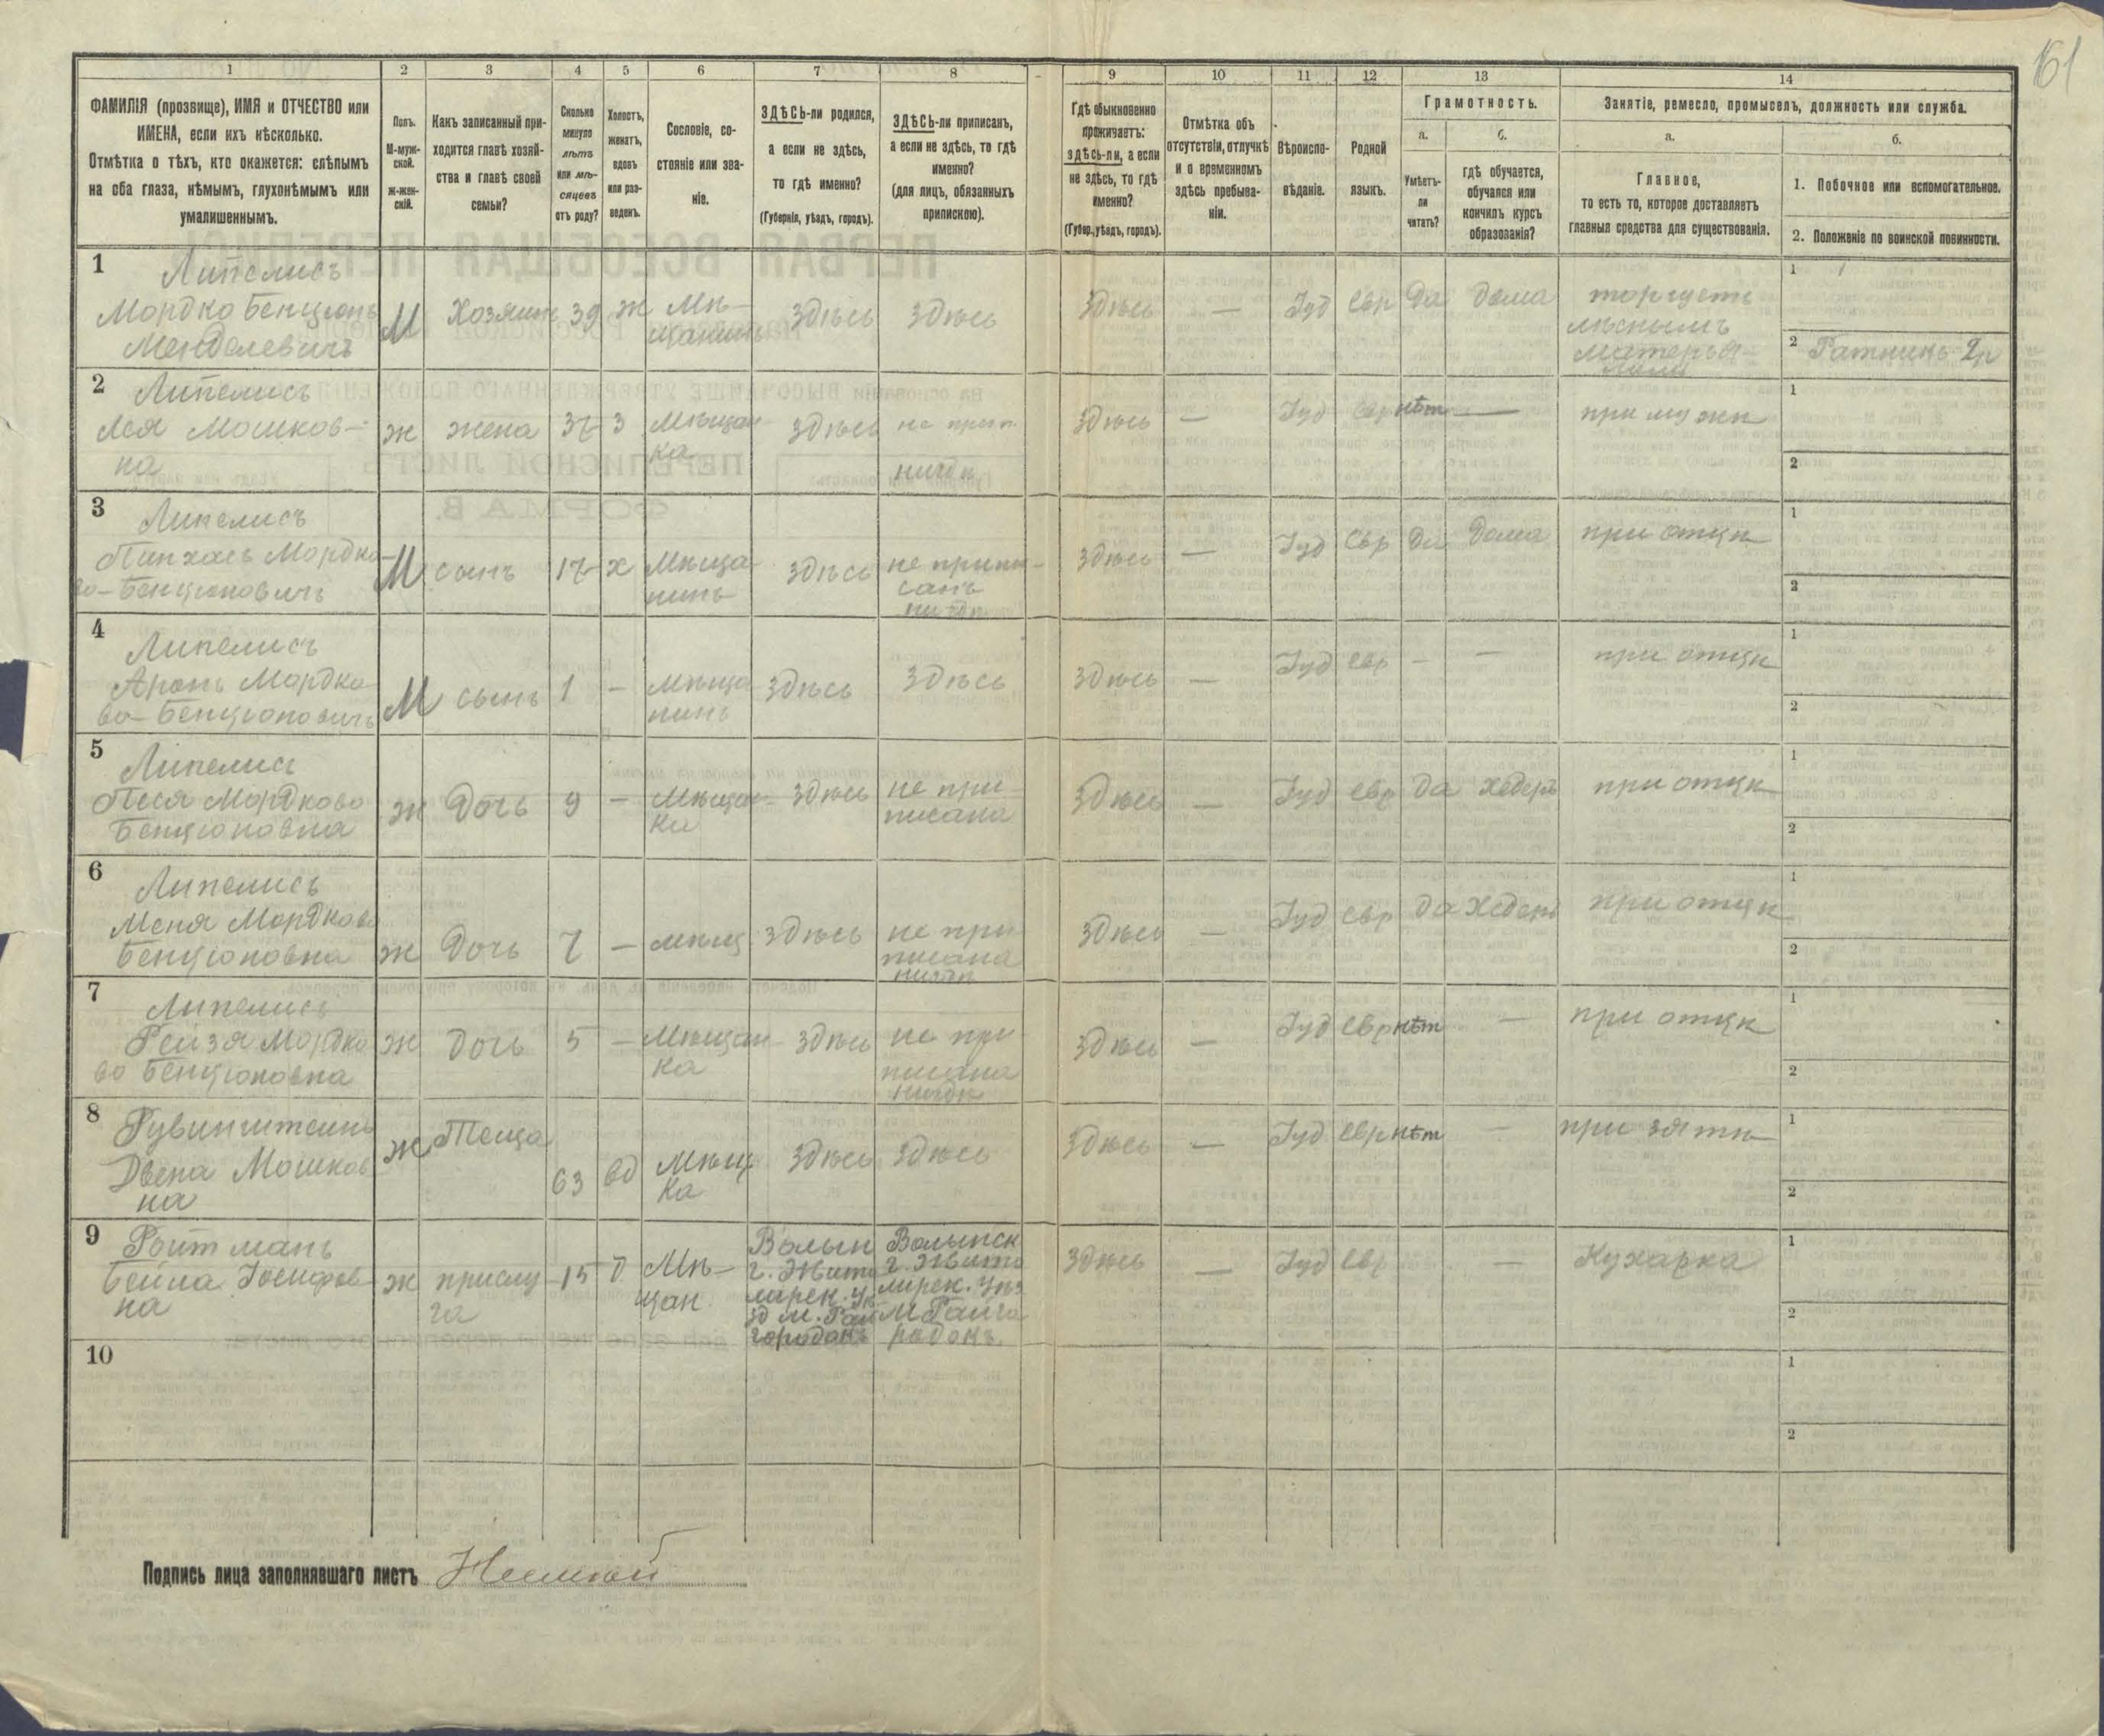 161
1 2 3 4 5 6 7 8 9 10 11 12 13 14
ФАМИЛІЯ (прозвище), ИМЯ и ОТЧЕСТВО или
ИМЕНА, если ихъ нѣсколько.
Отмѣтка о тѣхъ, кто окажется: слѣпымъ
на оба глаза, нѣмымъ, глухонѣмымъ или
умалишеннымъ.
Полъ.
М-муж-
ской.
Ж-жен-
скій.
Какъ записанный при-
ходится главѣ хозяй-
ства и главѣ своей
семьи?
Сколько
минуло
лѣтъ
или мѣ-
сяцевъ
отъ роду?
Холостъ,
женатъ,
вдовъ
или раз-
веденъ.
Сословіе, со-
стояніе или зва-
ніе.
ЗДѢСЬ-ли родился,
а если не здѣсь,
то гдѣ именно?
(Губернія, уѣздъ, городъ).
ЗДѢСЬ-ли приписанъ,
а если не здѣсь, то гдѣ
именно?
(для лицъ, обязанныхъ
припискою).
Гдѣ обыкновенно
проживаетъ:
здѣсь-ли, а если
не здѣсь, то гдѣ
именно?
(Губер., уѣздъ, городъ).
Отмѣтка объ
отсутствіи, отлучкѣ
и о временномъ
здѣсь пребыва-
ніи.
Вѣроиспо-
вѣданіе.
Родной
языкъ.
Грамотность.
а.
Умѣетъ-
ли
читать?
б.
гдѣ обучается,
обучался или
кончилъ курсъ
образованія?
Занятіе, ремесло, промыселъ, должность или служба.
а.
Главное,
то есть то, которое доставляетъ
главныя средства для существованія.
б.
1. Побочное или вспомогательное.
2. Положеніе по воинской повинности.
1
Липелисъ
Мордко Бенціонъ
Менделевичъ
М
Хозяинъ
39
ж
Мѣ-
щанинъ
здѣсь
здѣсь
здѣсь
—
Іуд
евр
да
дома
торгуетъ
лѣснымъ
матерья-
лами
1
2 Ратникъ 2р
2
Липелисъ
Лея Мошков-
на
ж
жена
37
з
Мѣщан
ка
здѣсь
не прип.
нигдѣ
здѣсь
—
Іуд
евр
нѣт
—
при мужѣ
1
2
3
Липелисъ
Пинхасъ Мордко-
во-Бенціоновичъ
М
сынъ
17
х
Мѣща-
нинъ
здѣсь
не припи-
санъ
нигдѣ
здѣсь
—
Іуд
евр
да
дома
при отцѣ
1
2
4
Липелисъ
Аронъ Мордко-
во-Бенціоновичъ
М
сынъ
1
—
мѣща
нинъ
здѣсь
здѣсь
здѣсь
—
Іуд
евр
—
—
при отцѣ
1
2
5
Липелисъ
Песя Мордково
Бенціоновна
ж
дочь
9
—
Мѣщан-
ка
здѣсь
не при-
писана
здѣсь
—
Іуд
евр
да
хедеръ
при отцѣ
1
2
6
Липелисъ
Меня Мордково
Бенціоновна
ж
дочь
7
—
мѣщ
здѣсь
не при
писана
нигдѣ
здѣсь
—
Іуд
евр
да
хедеръ
при отцѣ
1
2
7
Липелисъ
Рейзя Мордко
во Бенціоновна
ж
дочь
5
—
Мѣщан-
ка
здѣсь
не при
писана
нигдѣ
здѣсь
—
Іуд
евр
нѣт
—
при отцѣ
1
2
8
Рувинштейнъ
Двейа Мошков
на
ж
Теща
63
вд
Мѣщ
ка
здѣсь
здѣсь
здѣсь
—
Іуд
евр
нѣт
—
при зятѣ
1
2
9
Ройтманъ
Бейла Іосифов-
на
ж
прислу
га
15
д
Мѣ-
щан.
Волын
г. Жито
мирск. уѣ
зд м. Рай
городокъ
Волынск
г. Жито
мирск. уѣз
М Райго
родокъ.
здѣсь
—
Іуд
евр
—
Кухарка
1
2
10
1
2
Подпись лица заполнявшаго листъ